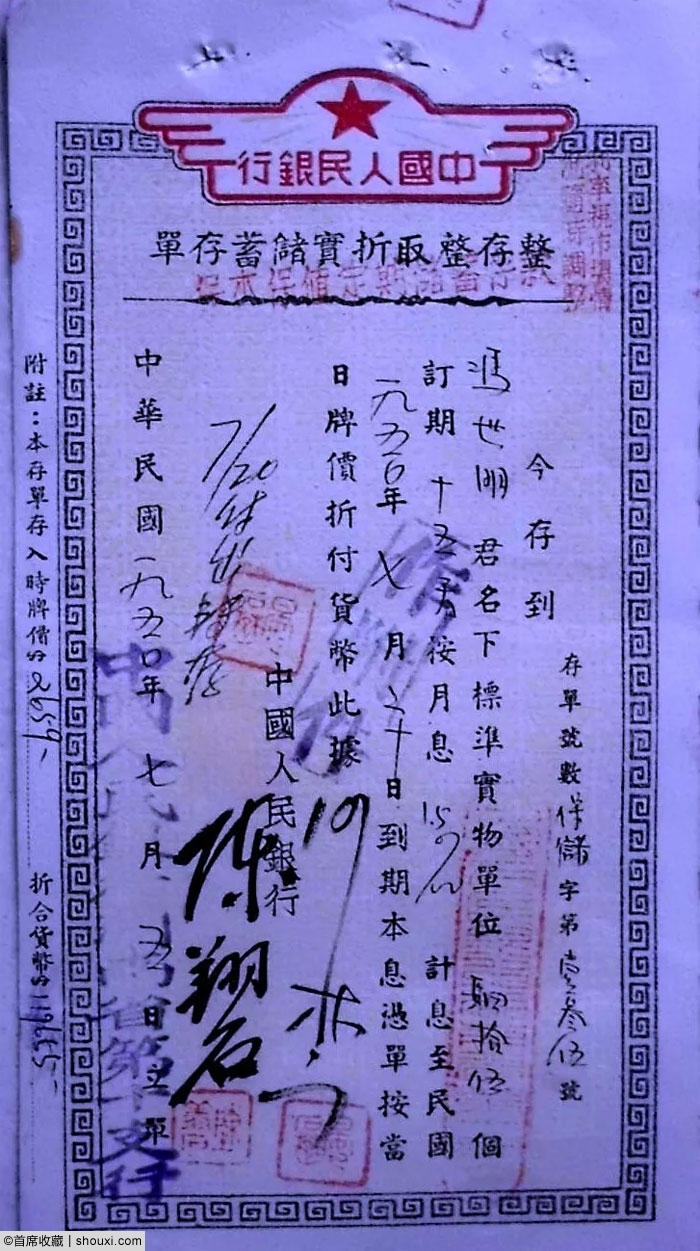 中國人民銀行
整存整取折實儲蓄存單
保本保值定期儲蓄存
存單號數保儲字第壹叁伍號
今存到
馮世明君名下標準實物單位肆拾伍個
訂期十五天按月息15‰計息至民國
一九五〇年七月二十日到期本息憑單按當
日牌價折付貨幣此據
中國人民銀行
7/20付出轉存
陳翔石
中華民國一九五〇年七月五日立單
附註：本存單存入時牌價@2659- 折合貨幣@119655-
©首席收藏 | shouxi.com